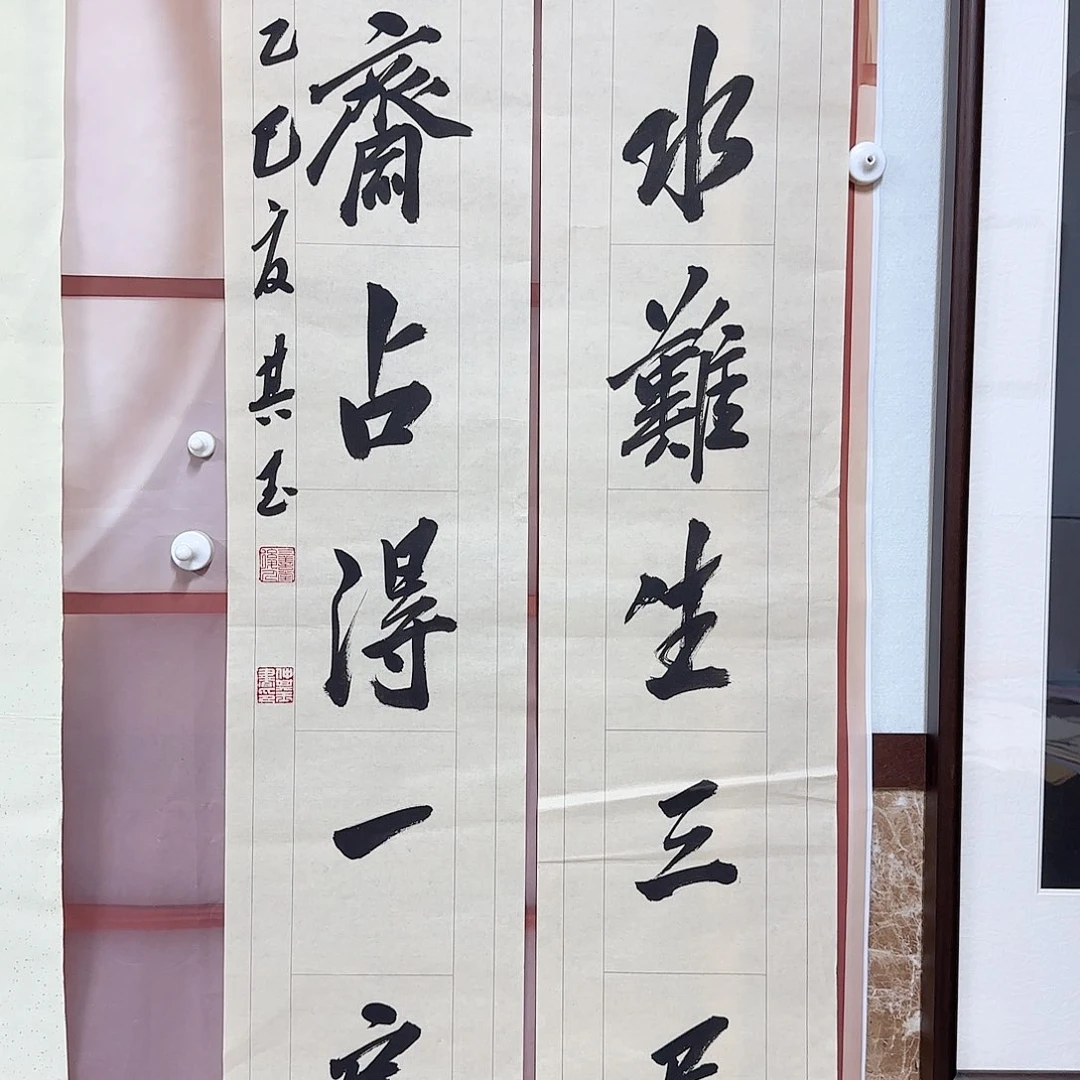 水難生三
齋占得一
乙巳夏其玉